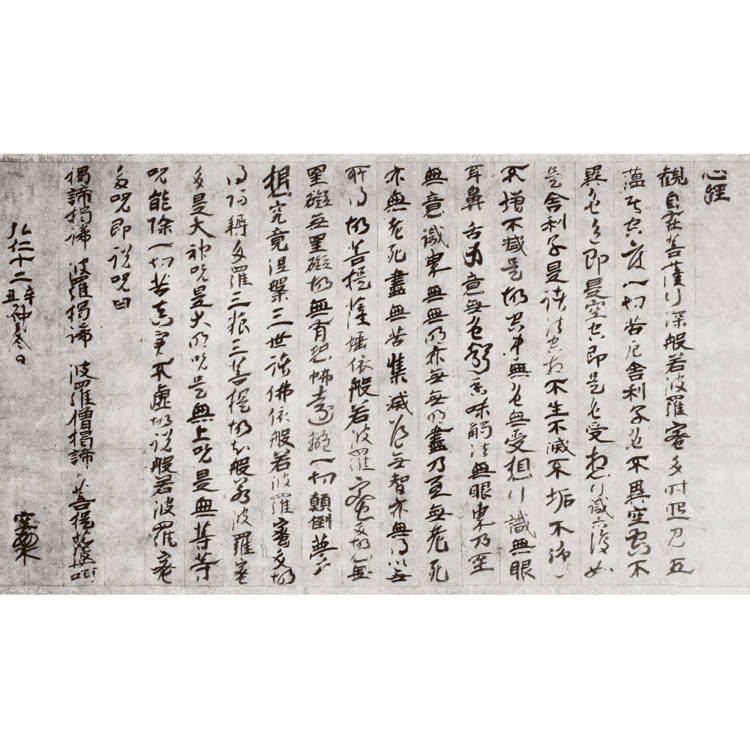 心経
観自在菩薩行深般若波羅蜜多時照見五
蘊皆空度一切苦厄舍利子色不異空空不
異色色即是空空即是色受想行識亦復如
是舍利子是諸法空相不生不滅不垢不浄
不増不減是故空中無色無受想行識無眼
耳鼻舌身意無色聲香味觸法無眼界乃至
無意識界無無明亦無無明盡乃至無老死
亦無老死盡無苦集滅道無智亦無得以無
所得故菩提薩埵依般若波羅蜜多故心無
罣礙無罣礙故無有恐怖遠離一切顛倒夢
想究竟涅槃三世諸佛依般若波羅蜜多故
得阿耨多羅三藐三菩提故知般若波羅蜜
多是大神呪是大明呪是無上呪是無等等
呪能除一切苦真実不虚故説般若波羅蜜
多呪即説呪曰
揭諦揭諦 波羅揭諦 波羅僧揭諦 菩提娑婆呵
弘仁十二辛丑仲冬日